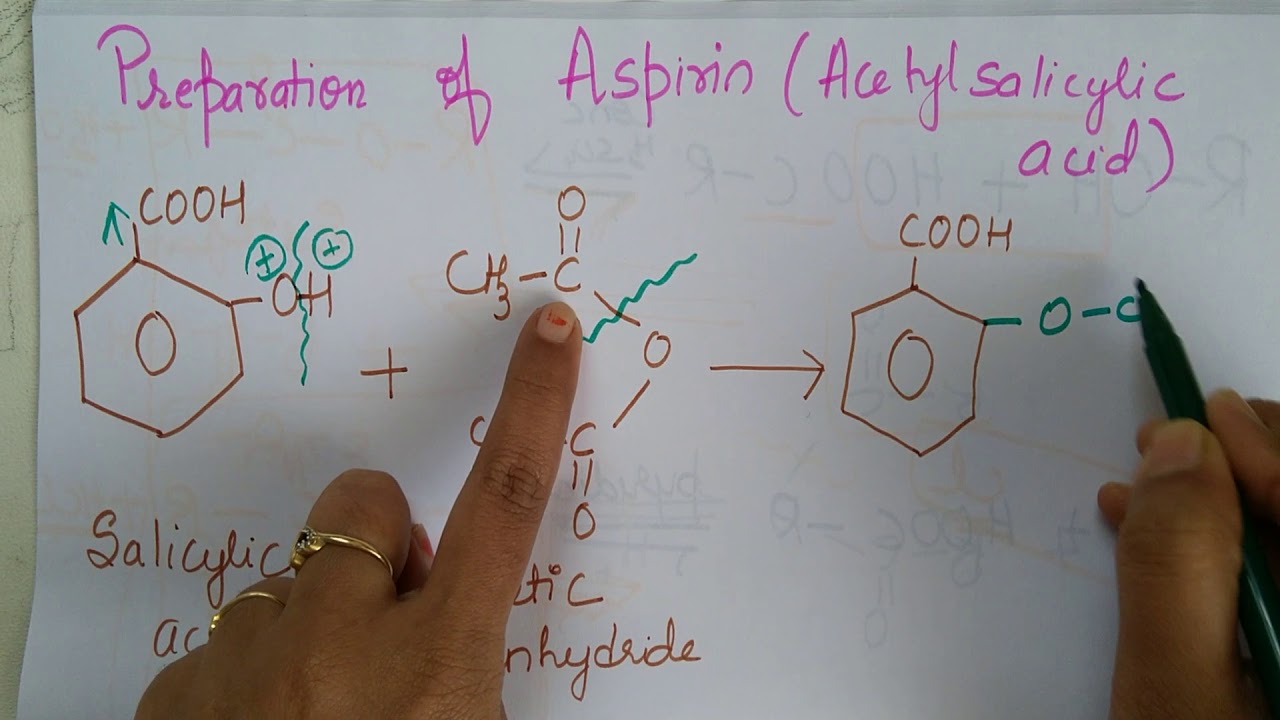 Preparation of Aspirin (Acetylsalicylic
acid)
COOH
⊕ ⊕
OH
+
O
CH3-C
O
C
O
→
COOH
O-C
Salicylic
nhydride